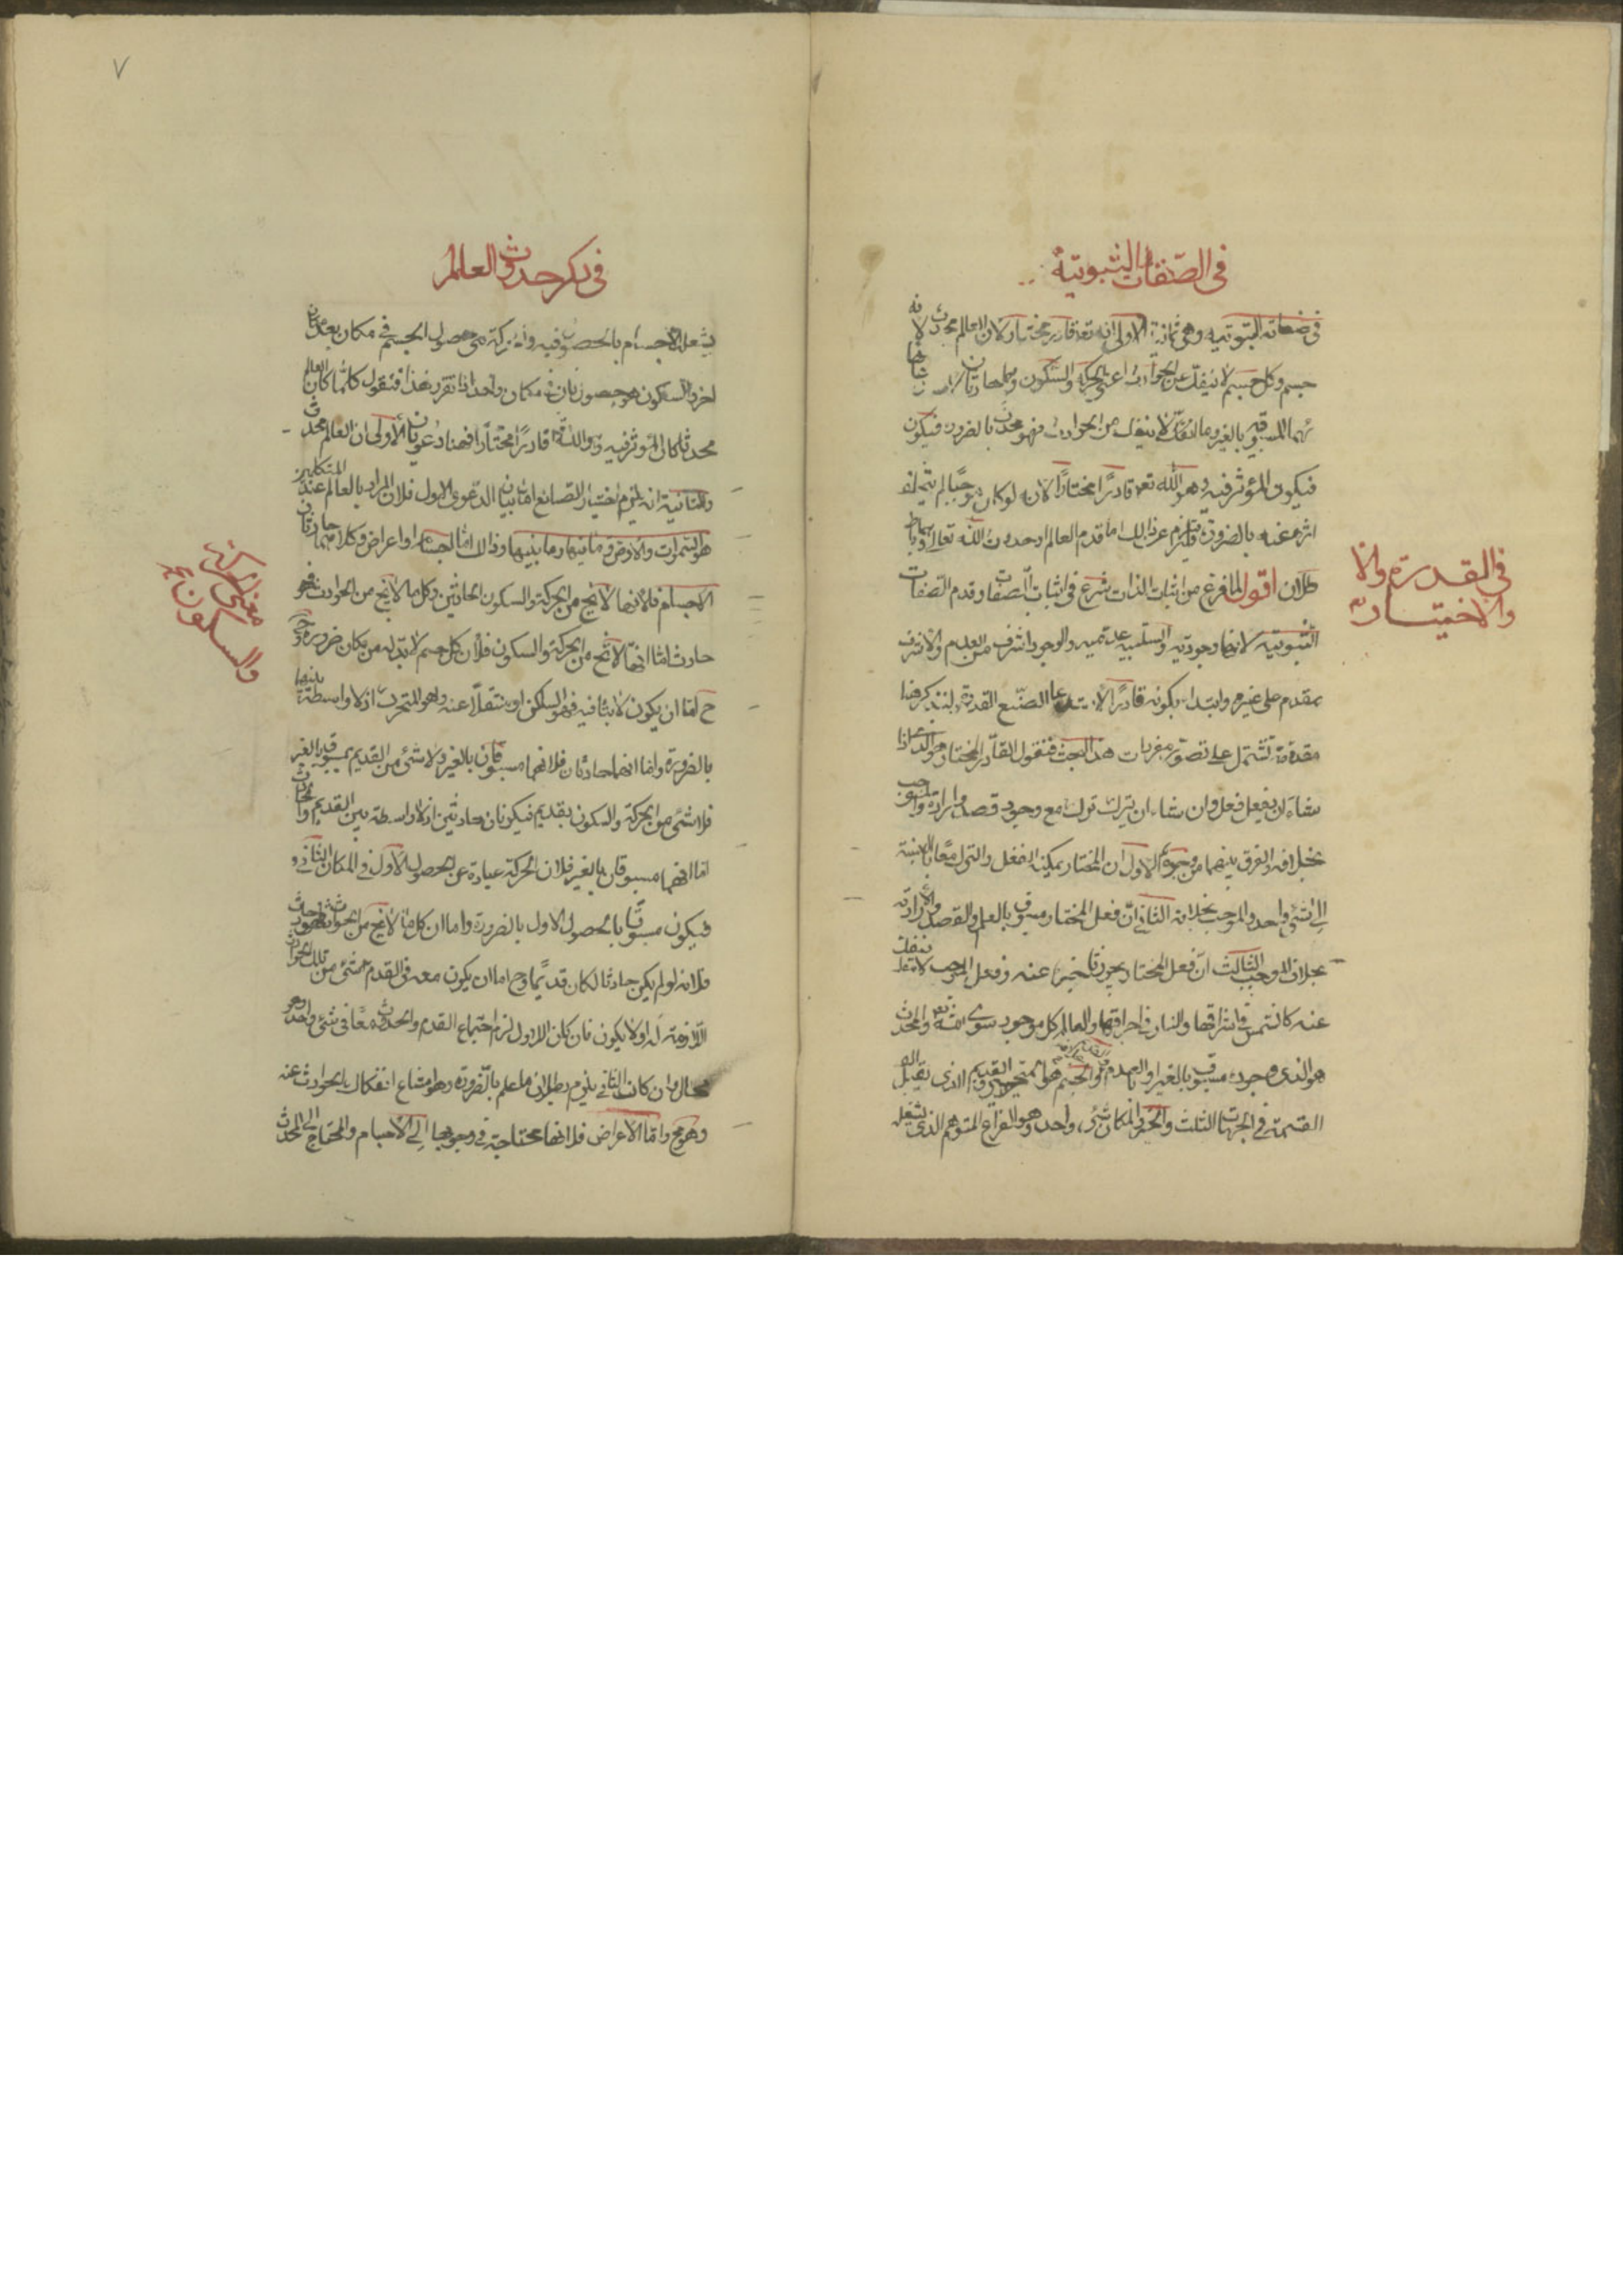 في الصفات الثبوتية
في صفاته الثبوتيه وهي ثمانية الاولى انه تعه قادر مختار لان العالم محدث لانه
جسم وكل جسم لا ينفك عن الحوادث اعني الحركة والسكون وهما حادثان
المسبوقية بالغير وما لا ينفك من الحوادث فهو محدث بالضرورة فيكون
فيكون المؤثر فيه وهو الله تعه قادرًا مختارًا لانه لو كان موجبًا لم يتخلف
اثره عنه بالضرورة فيلزم من ذالك اما قدم العالم او حدوث الله تعالى وهما
باطلان اقول لما فرغ من اثبات الذات شرع في اثبات الصفات وقدم الصفات
الثبوتيه لانها وجوديه والسلبيه عدميه والوجود اشرف من العدم والاشرف
مقدم على غيره وابتداء بكونه قادرًا لاستدعا الصنع القدرة ولنذكر هنا
مقدمة تشتمل على تصور مفردات هذا البحث فنقول القادر المختار هو الذى اذا
شاء ان يفعل فعل وان شاء ان يترك ترك مع وجود قصد وارادة والموجب
بخلافه والفرق بينهما من وجوه الاول ان المختار يمكنه الفعل والترك معًا بالنسبة
الى شئ واحد والموجب بخلافه الثاني ان فعل المختار مسبوق بالعلم والقصد والارادة
بخلاف الموجب الثالث ان فعل المختار يجوز تاخيره عنه وفعل الموجب لا ينفك
عنه كالشمس في اشراقها والنار في احراقها والعالم كل موجود سوى الله تعه والمحدث
هو الذى وجوده مسبوق بالغير او بالعدم والقديم بخلافه والجسم هو المتحيز الذى يقبل
القسمة في الجهات الثلث والحيز والمكان شئ واحد وهو الفراغ المتوهم الذى يشغله
في القدرة والا
والاختيار
٧
في ذكر حدوث العالم
يشغله الاجسام بالحصول فيه والحركة هي حصول الجسم في مكان بعد مكان
اخر والسكون هو حصول ثان في مكان واحد اذا تقرر هذا فنقول كلما كان العالم
محدثا كان المؤثر فيه وهو الله تعه قادرًا مختارًا فهنا دعوتان الاولى ان العالم محدث
والثانية انه يلزم اختيار الصانع اما بيان الدعوى الاولى فلان المراد بالعالم عند المتكلمين
هو السموات والارض وما فيهما وما بينهما وذالك اما اجسام او اعراض وكلاهما حادثان
اما الاجسام فلانها لا تخ من الحركة والسكون الحادثين وكل ما لا يخ من الحوادث فهو
حادث اما انها لا تخ من الحركة والسكون فلان كل جسم لا بد له من مكان ضرورة
ح اما ان يكون لابثا فيه فهو الساكن او منتقلاً عنه وهو المتحرك اذ لا واسطة بينهما
بالضرورة واما انهما حادثان فلانهما مسبوقان بالغير ولا شئ من القديم بمسبوق بالغير
فلا شئ من الحركة والسكون بقديم فيكونان حادثين اذ لا واسطة بين القديم والحادث
اما انهما مسبوقان بالغير فلان الحركة عبارة عن الحصول الاول في المكان الثاني
فيكون مسبوقًا بالحصول الاول بالضرورة واما ان كل ما لا يخ من الحوادث فهو حادث
فلانه لو لم يكن حادثا لكان قديمًا وح اما ان يكون معه في القدم شئ من تلك الحوادث
اللازمة له او لا يكون فان كان الاول لزم اجتماع القدم والحدوث معًا في شئ واحد وهو
محال وان كان الثاني يلزم بطلان ما علم بالضرورة وهو امتناع انفكاك الحوادث عنه
وهو مح واما الاعراض فلانها محتاجة في وجودها الى الاجسام والمحتاج الى المحدث
معنى الحركة
والسكون